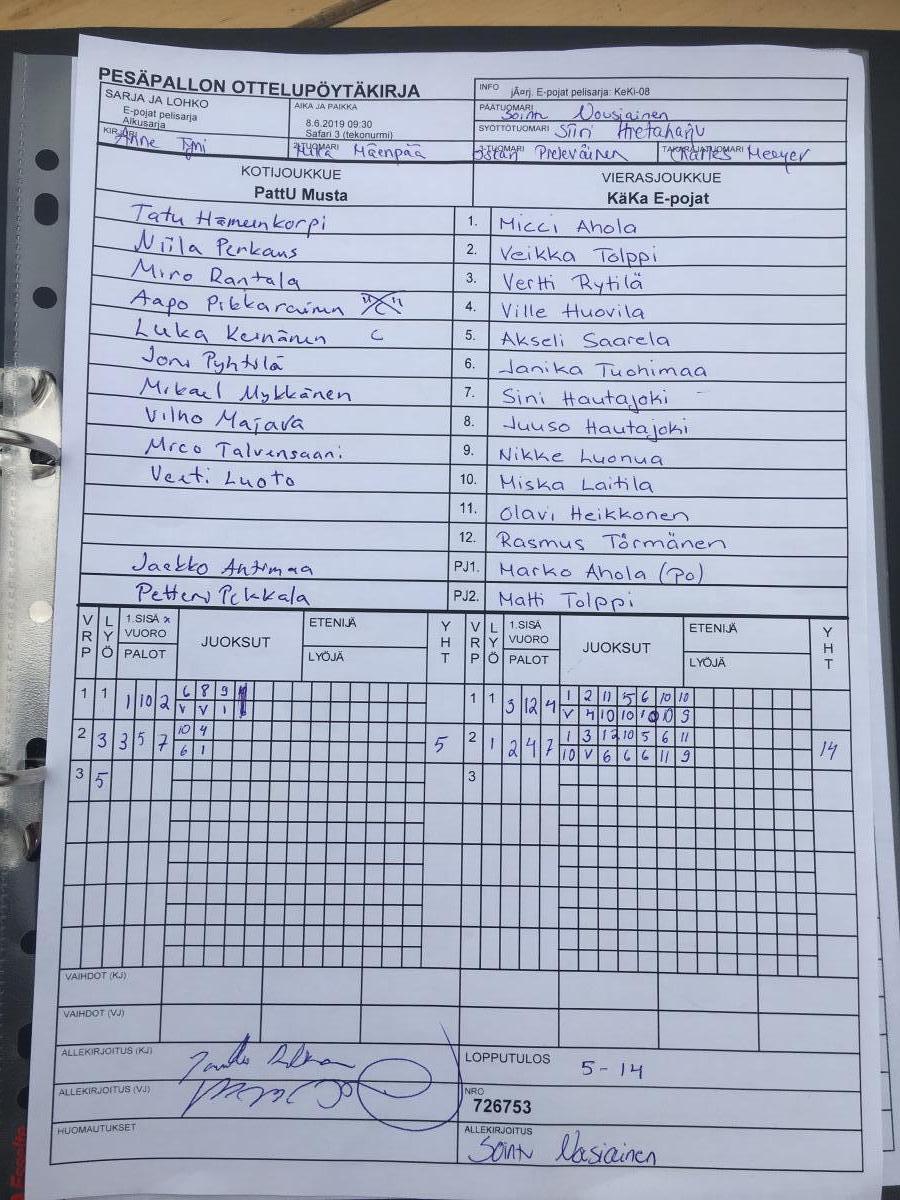 PESÄPALLON OTTELUPÖYTÄKIRJA
SARJA JA LOHKO
E-pojat pelisarja
Alkusarja
AIKA JA PAIKKA
8.6.2019 09:30
Safari 3 (tekonurmi)
INFO
jÃ¤rj. E-pojat pelisarja: KeKi-08
PÄÄTUOMARI
Sointu Nousiainen
SYÖTTÖTUOMARI Siiri Hietaharju
Anne
Mäenpää
KOTIJOUKKUE
PattU Musta
VIERASJOUKKUE
KäKa E-pojat
Tatu Hämeenkorpi 1. Micci Ahola
Niila Perkaus 2. Veikka Tolppi
Miro Rantala 3. Vertti Rytilä
Aapo Pikkarainen "C" 4. Ville Huovila
Luka Keinänen C 5. Akseli Saarela
Joni Pyhtilä 6. Janika Tuohimaa
Mikael Mykkänen 7. Sini Hautajoki
Vilho Majava 8. Juuso Hautajoki
Mico Talvensaari 9. Nikke Luonua
Veeti Luoto 10. Miska Laitila
11. Olavi Heikkonen
12. Rasmus Törmänen
Jaakko Antimaa PJ1. Marko Ahola (PO)
Petteri Pekkala PJ2. Matti Tolppi
VRP LYÖ 1.SISÄ X VUORO PALOT JUOKSUT ETENIJÄ LYÖJÄ YHT VRP LYÖ 1.SISÄ VUORO PALOT JUOKSUT ETENIJÄ LYÖJÄ YHT
1 1 1 10 2 6 8 9 1 1 3 12 4 1 2 11 5 6 10 10
V V 1 V 4 10 10 10 10 9
2 3 3 5 7 10 4 5 2 1 2 4 7 1 3 12 10 5 6 11 14
6 1 10 V 6 6 6 11 9
3 5 3
VAIHDOT (KJ)
VAIHDOT (VJ)
ALLEKIRJOITUS (KJ)
LOPPUTULOS 5-14
ALLEKIRJOITUS (VJ)
NRO
726753
HUOMAUTUKSET
ALLEKIRJOITUS
Sointu Nousiainen